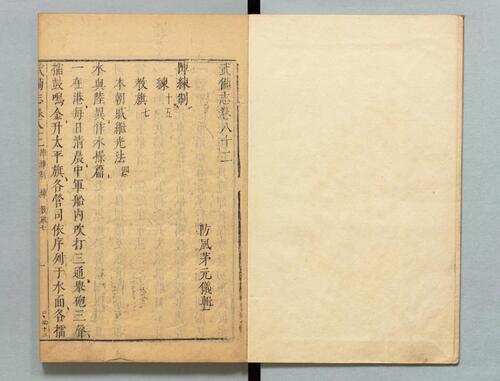 武備志卷八十二
防風茅元儀輯
陣練制
練十五
教旗七
本朝戚繼光法四
水與陸異作水操篇
一在港每日清晨中軍船內吹打三通舉砲三聲
擂鼓鳴金升太平旗各營司依序列于水面各擂
武備志卷八十二 陣練制 練 教旗七 一